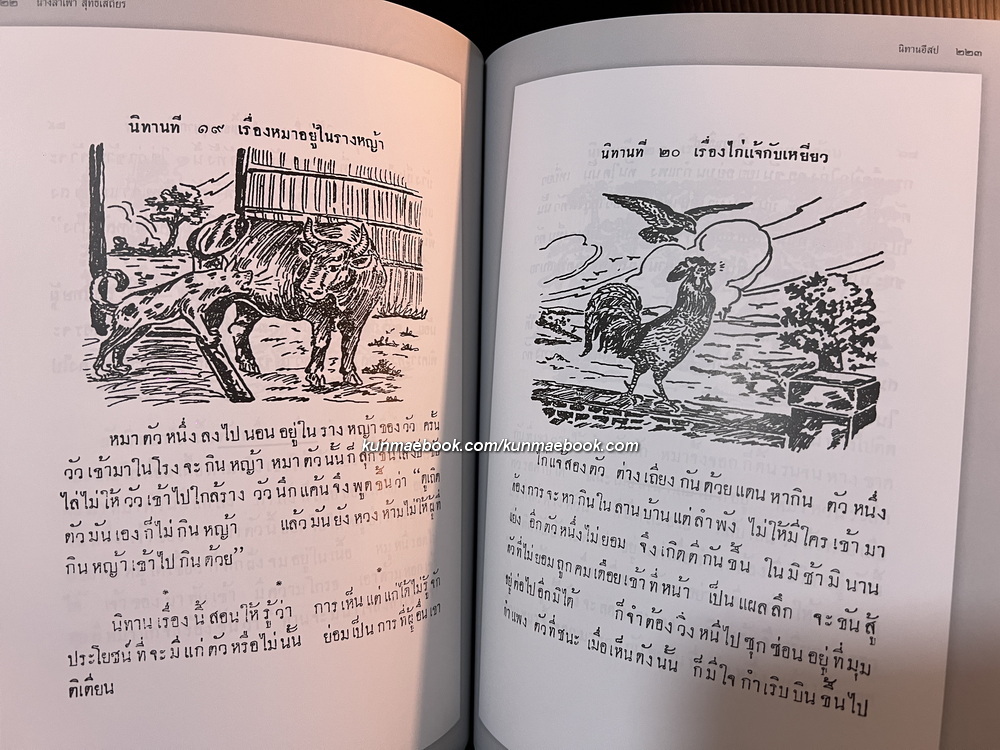 ๒๒ นางลำเพา สุทธเสถียร
นิทานที่ ๑๙ เรื่องหมาอยู่ในรางหญ้า
หมาตัวหนึ่งลงไปนอนอยู่ในรางหญ้าของวัว ครั้น
วัวเข้ามาในโรงจะกินหญ้า หมาตัวนั้นก็ลุกขึ้น
ไล่ไม่ให้วัวเข้าไปใกล้ราง วัวนึกแค้นจึงพูดขึ้นว่า “ดูเถิด
ตัวมันเองก็ไม่กินหญ้า แล้วมันยังหวงห้ามไม่ให้ผู้ที่
กินหญ้าเข้าไปกินด้วย”
นิทานเรื่องนี้สอนให้รู้ว่า การเห็นแต่แก่ได้ไม่รู้จัก
ประโยชน์ที่จะมีแก่ตัวหรือไม่นั้น ย่อมเป็นการที่ผู้อื่นเขา
ติเตียน
นิทานอีสป ๒๒๓
นิทานที่ ๒๐ เรื่องไก่แจ้กับเหยี่ยว
kunmaebook.com/kunmaebook.com
ไก่แจ้สองตัว ต่างเถียงกันด้วยแดนหากิน ตัวหนึ่ง
ต้องการจะหากินในลานบ้านแต่ลำพัง ไม่ให้มีใครเข้ามา
แย่ง อีกตัวหนึ่งไม่ยอม จึงเกิดตีกันขึ้น ในมิช้ามินาน
ตัวที่ไม่ยอมถูกคมเดือยเข้าที่หน้า เป็นแผลลึก จะขันสู้
อยู่ต่อไปอีกมิได้ ก็จำต้องวิ่งหนีไปซุกซ่อนอยู่ที่มุม
กำแพง ตัวที่ชนะ เมื่อเห็นดังนั้น ก็มีใจกำเริบบินขึ้นไป